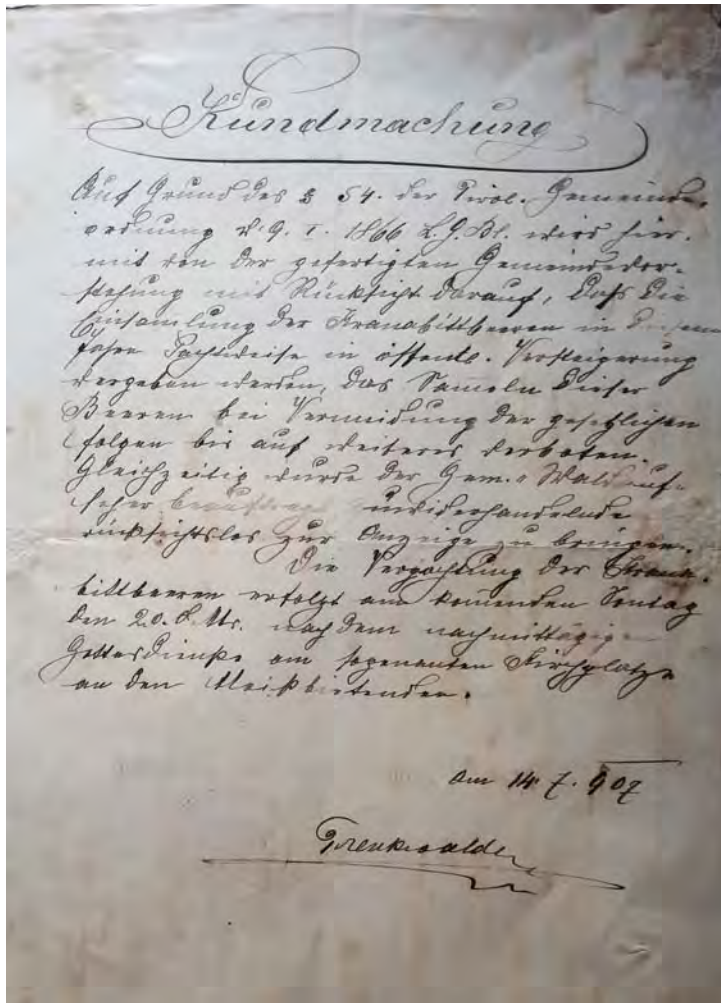 Kundmachung
Auf Grund des § 54. der Tirol. Gemeinde-
ordnung v. 9. I. 1866 L.G.Bl. wird hier-
mit von der gefertigten Gemeindevor-
stehung mit Rücksicht darauf, daß die
Einsamlung der Kranabittbeeren in diesem
Jahre Pachtweise in öffentl. Versteigerung
vergeben werden, das Sameln dieser
Beeren bei Vermeidung der gesetzlichen
folgen bis auf weiteres verboten.
Gleichzeitig wurde der Gem.- Waldauf-
seher beauftragt zuwiderhandelnde
rücksichtslos zur Anzeige zu bringen.
Die Verpachtung der Krana-
bittbeeren erfolgt am komenden Sontag
den 20. d. Mts. nach dem nachmittägigen
Gottesdienste am sogenanten Kirchplatze
an den Meistbietenden.
am 14. 7. 907
Trenkwalder